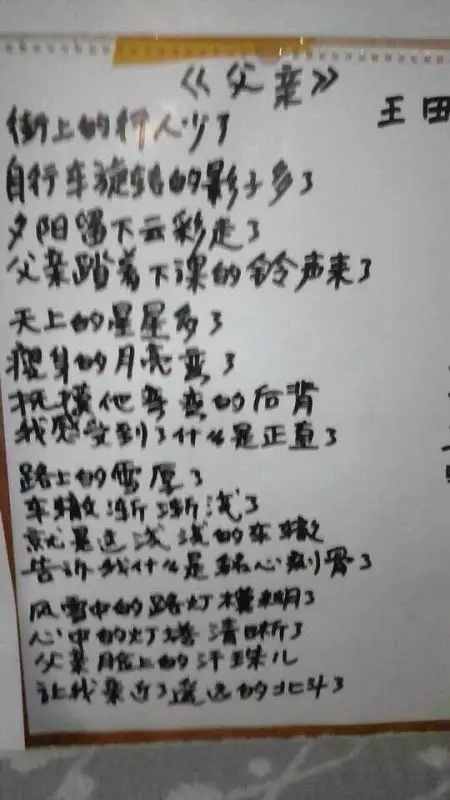 《父亲》
王田
街上的行人少了
自行车旋转的影子多了
夕阳留下云彩走了
父亲踏着下课的铃声来了
天上的星星多了
瘦身的月亮弯了
抚摸他弯弯的后背
我感受到了什么是正直了
路上的雪厚了
车辙渐渐浅了
就是这浅浅的车辙
告诉我什么是铭心刻骨了
风雪中的路灯模糊了
心中的灯塔清晰了
父亲脸上的汗珠儿
让我亲近了遥远的北斗了